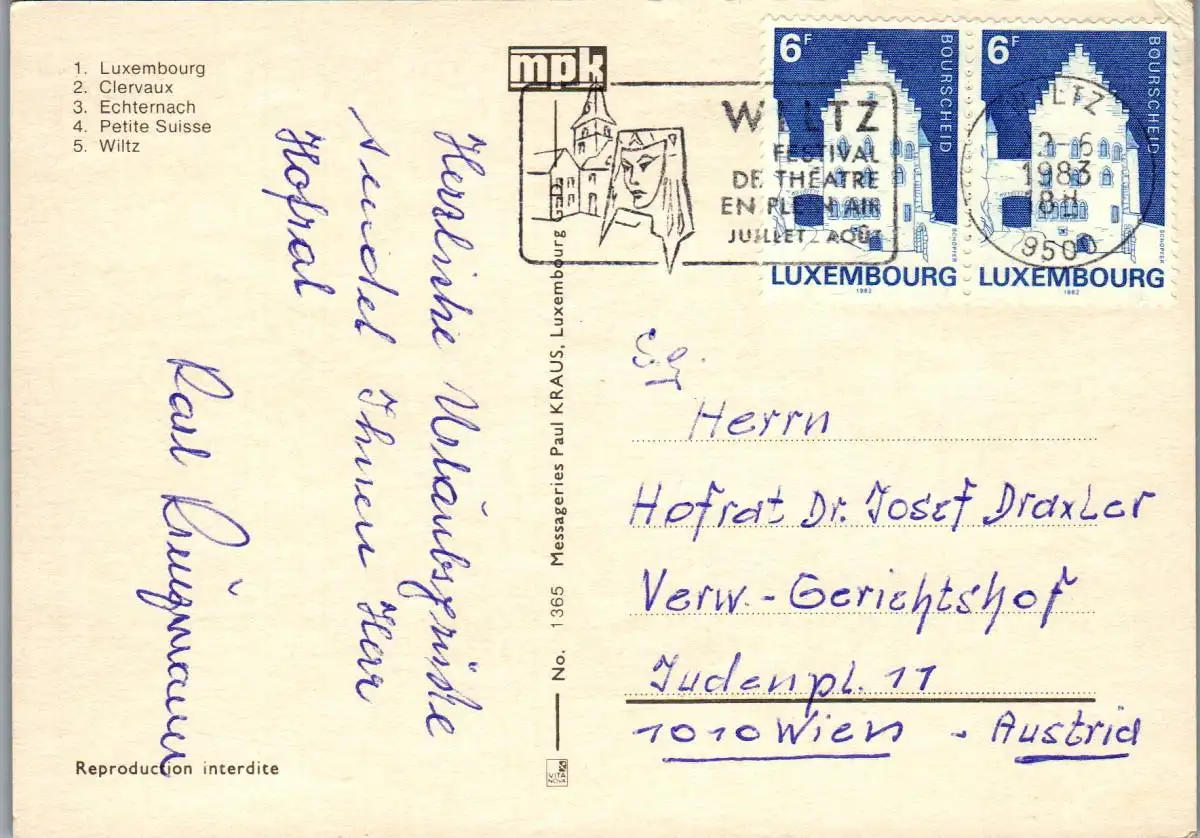 1. Luxembourg
2. Clervaux
3. Echternach
4. Petite Suisse
5. Wiltz
mpk
WILTZ
FESTIVAL
DE THÉATRE
EN PLEIN AIR
JUILLET AOÛT
6F
BOURSCHEID
SCHOPFER
LUXEMBOURG
1982
6F
BOURSCHEID
SCHOPFER
LUXEMBOURG
1982
WILTZ
-6
1983
18H
9500
Herzliche Urlaubsgrüße
sendet Ihnen Herr
Hofrat
Karl
Reproduction interdite
No. 1365 Messageries Paul KRAUS, Luxembourg
VITA
NOVA
Herrn
Hofrat Dr. Josef Draxler
Verw.-Gerichtshof
Judenpl. 11
1010 Wien - Austria